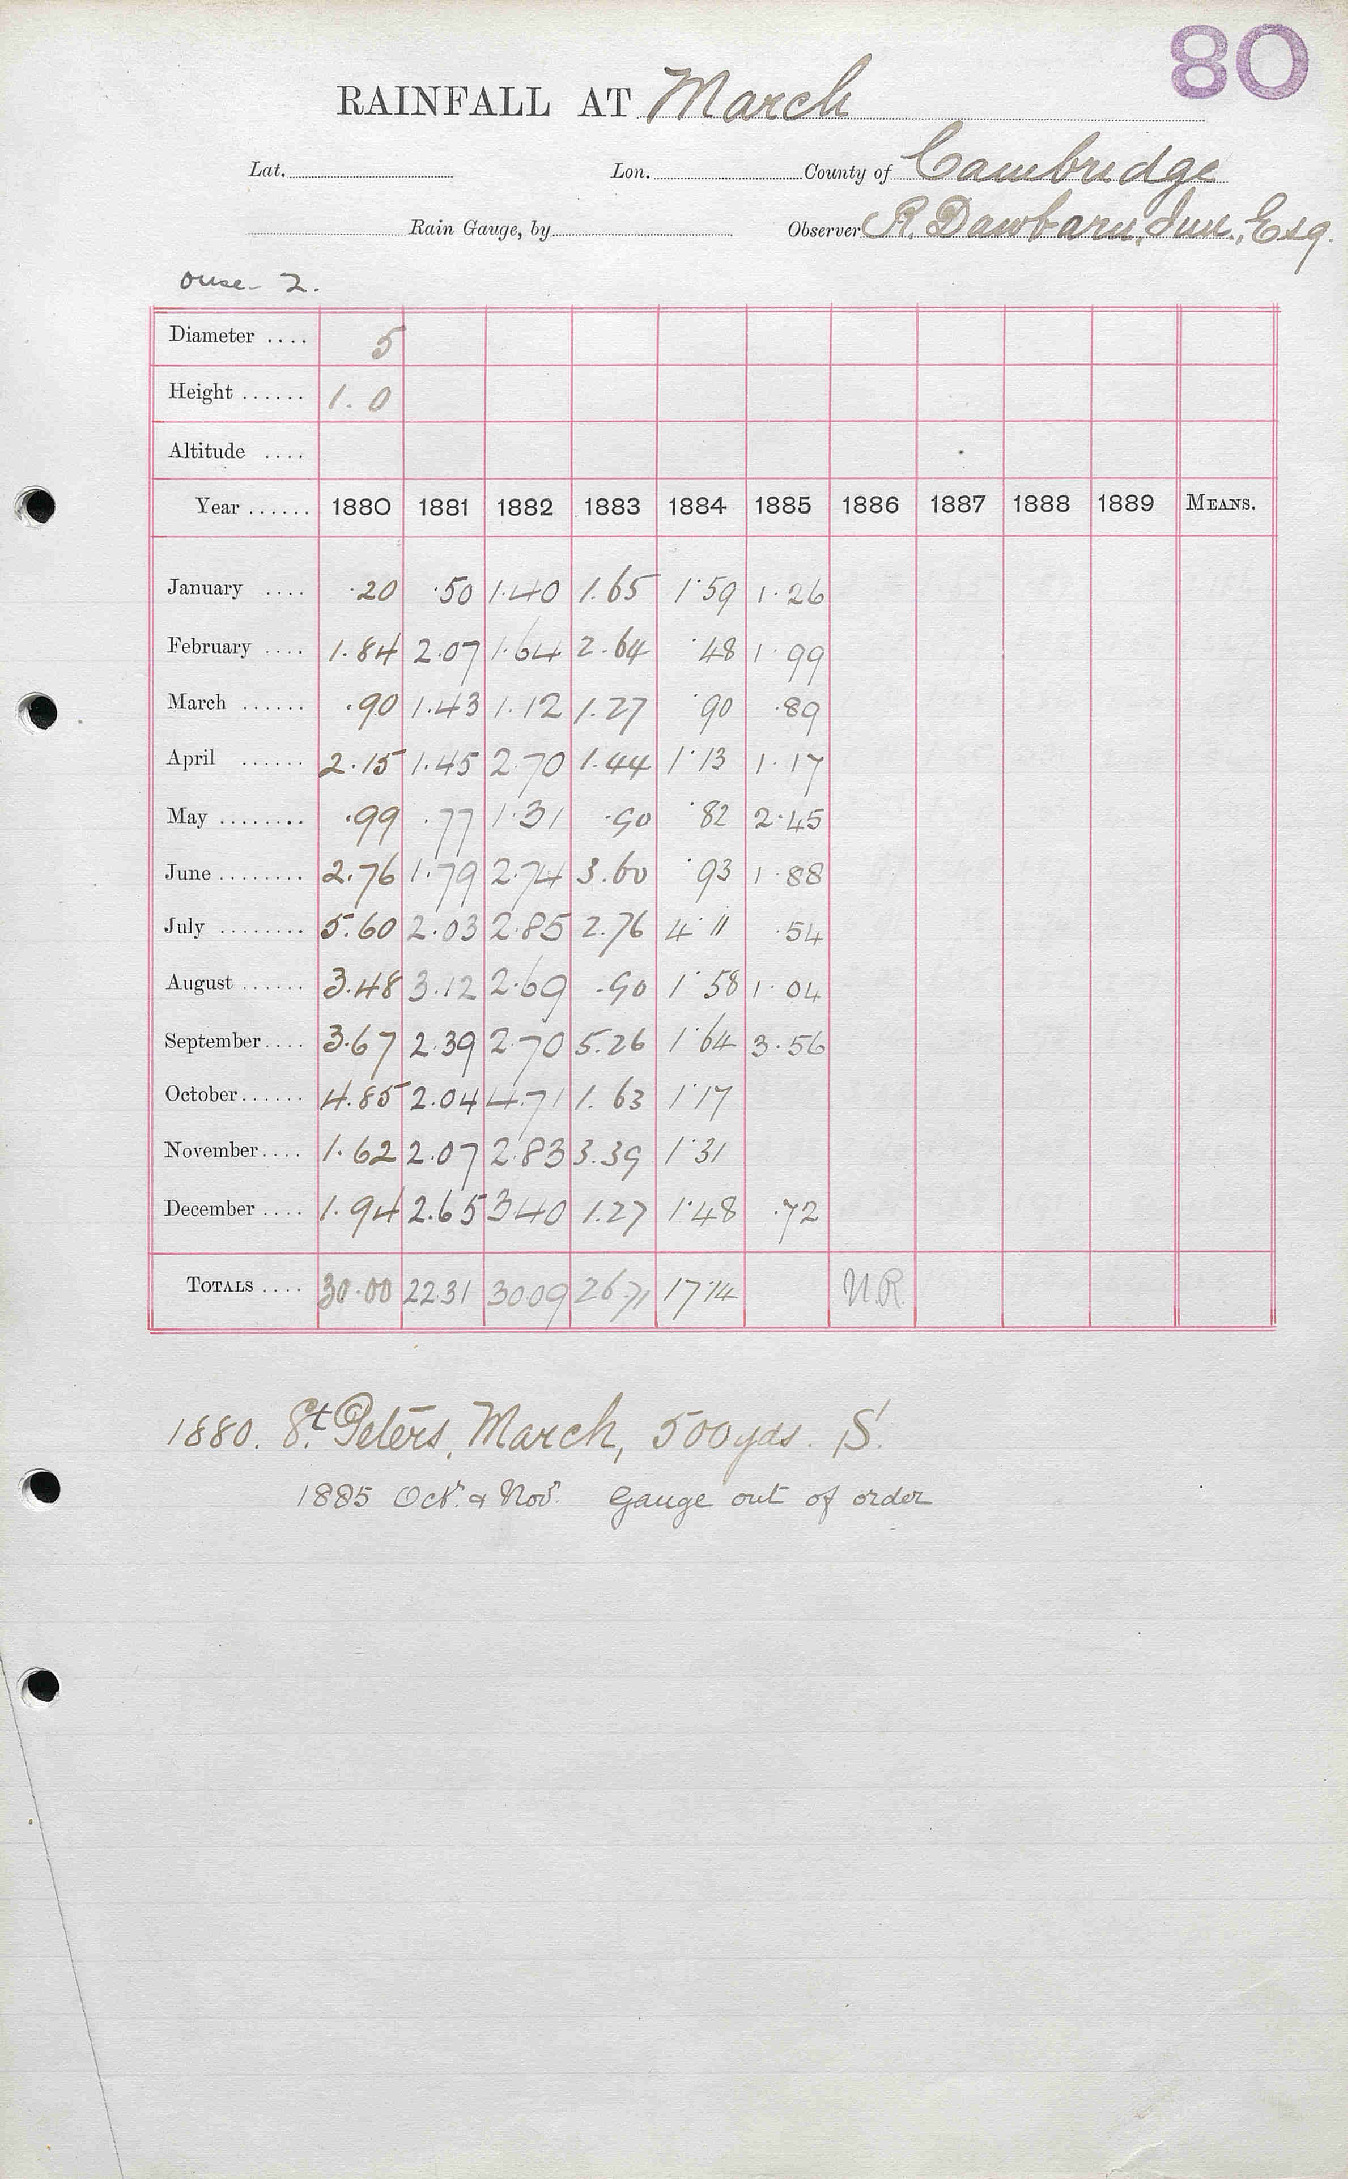 80
RAINFALL AT March
Lat. Lon. County of Cambridge
Rain Gauge, by Observer R. Dawbarn, Jun., Esq.
Ouse - 2.
Diameter .... 5
Height ...... 1. 0
Altitude ....
Year ...... 1880 1881 1882 1883 1884 1885 1886 1887 1888 1889 MEANS.
January .... .20 .50 1.40 1.65 1.59 1.26
February .... 1.84 2.07 1.64 2.64 .48 1.99
March ...... .90 1.43 1.12 1.27 .90 .89
April ...... 2.15 1.45 2.70 1.44 1.13 1.17
May ........ .99 .77 1.31 .90 .82 2.45
June ........ 2.76 1.79 2.74 3.60 .93 1.88
July ........ 5.60 2.03 2.85 2.76 4.11 .54
August ...... 3.48 3.12 2.69 .90 1.58 1.04
September .... 3.67 2.39 2.70 5.26 1.64 3.56
October ...... 4.85 2.04 4.71 1.63 1.17
November .... 1.62 2.07 2.83 3.39 1.31
December .... 1.94 2.65 3.40 1.27 1.48 .72
TOTALS .... 30.00 22.31 30.09 26.71 17.14 N.R.
1880. St. Peters, March, 500 yds. S.
1885 Oct. & Nov. Gauge out of order